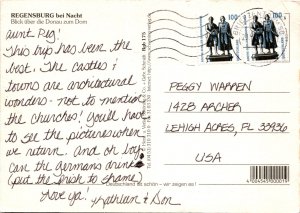 REGENSBURG bei Nacht
Blick über die Donau zum Dom
aunt Peg!
This trip has been the
best. The castles &
towns are architectural
wonders - not to mention
the churches! You'll have
to see the pictures when
we return. And oh my
can the Germans drink
(put the Irish to shame)
Love ya! Kathleen & Don
Rgb 175
100
100
PEGGY WARREN
1428 ARCHER
LEHIGH ACRES, FL 33936
USA
Deutschland ist schön - wir zeigen es!